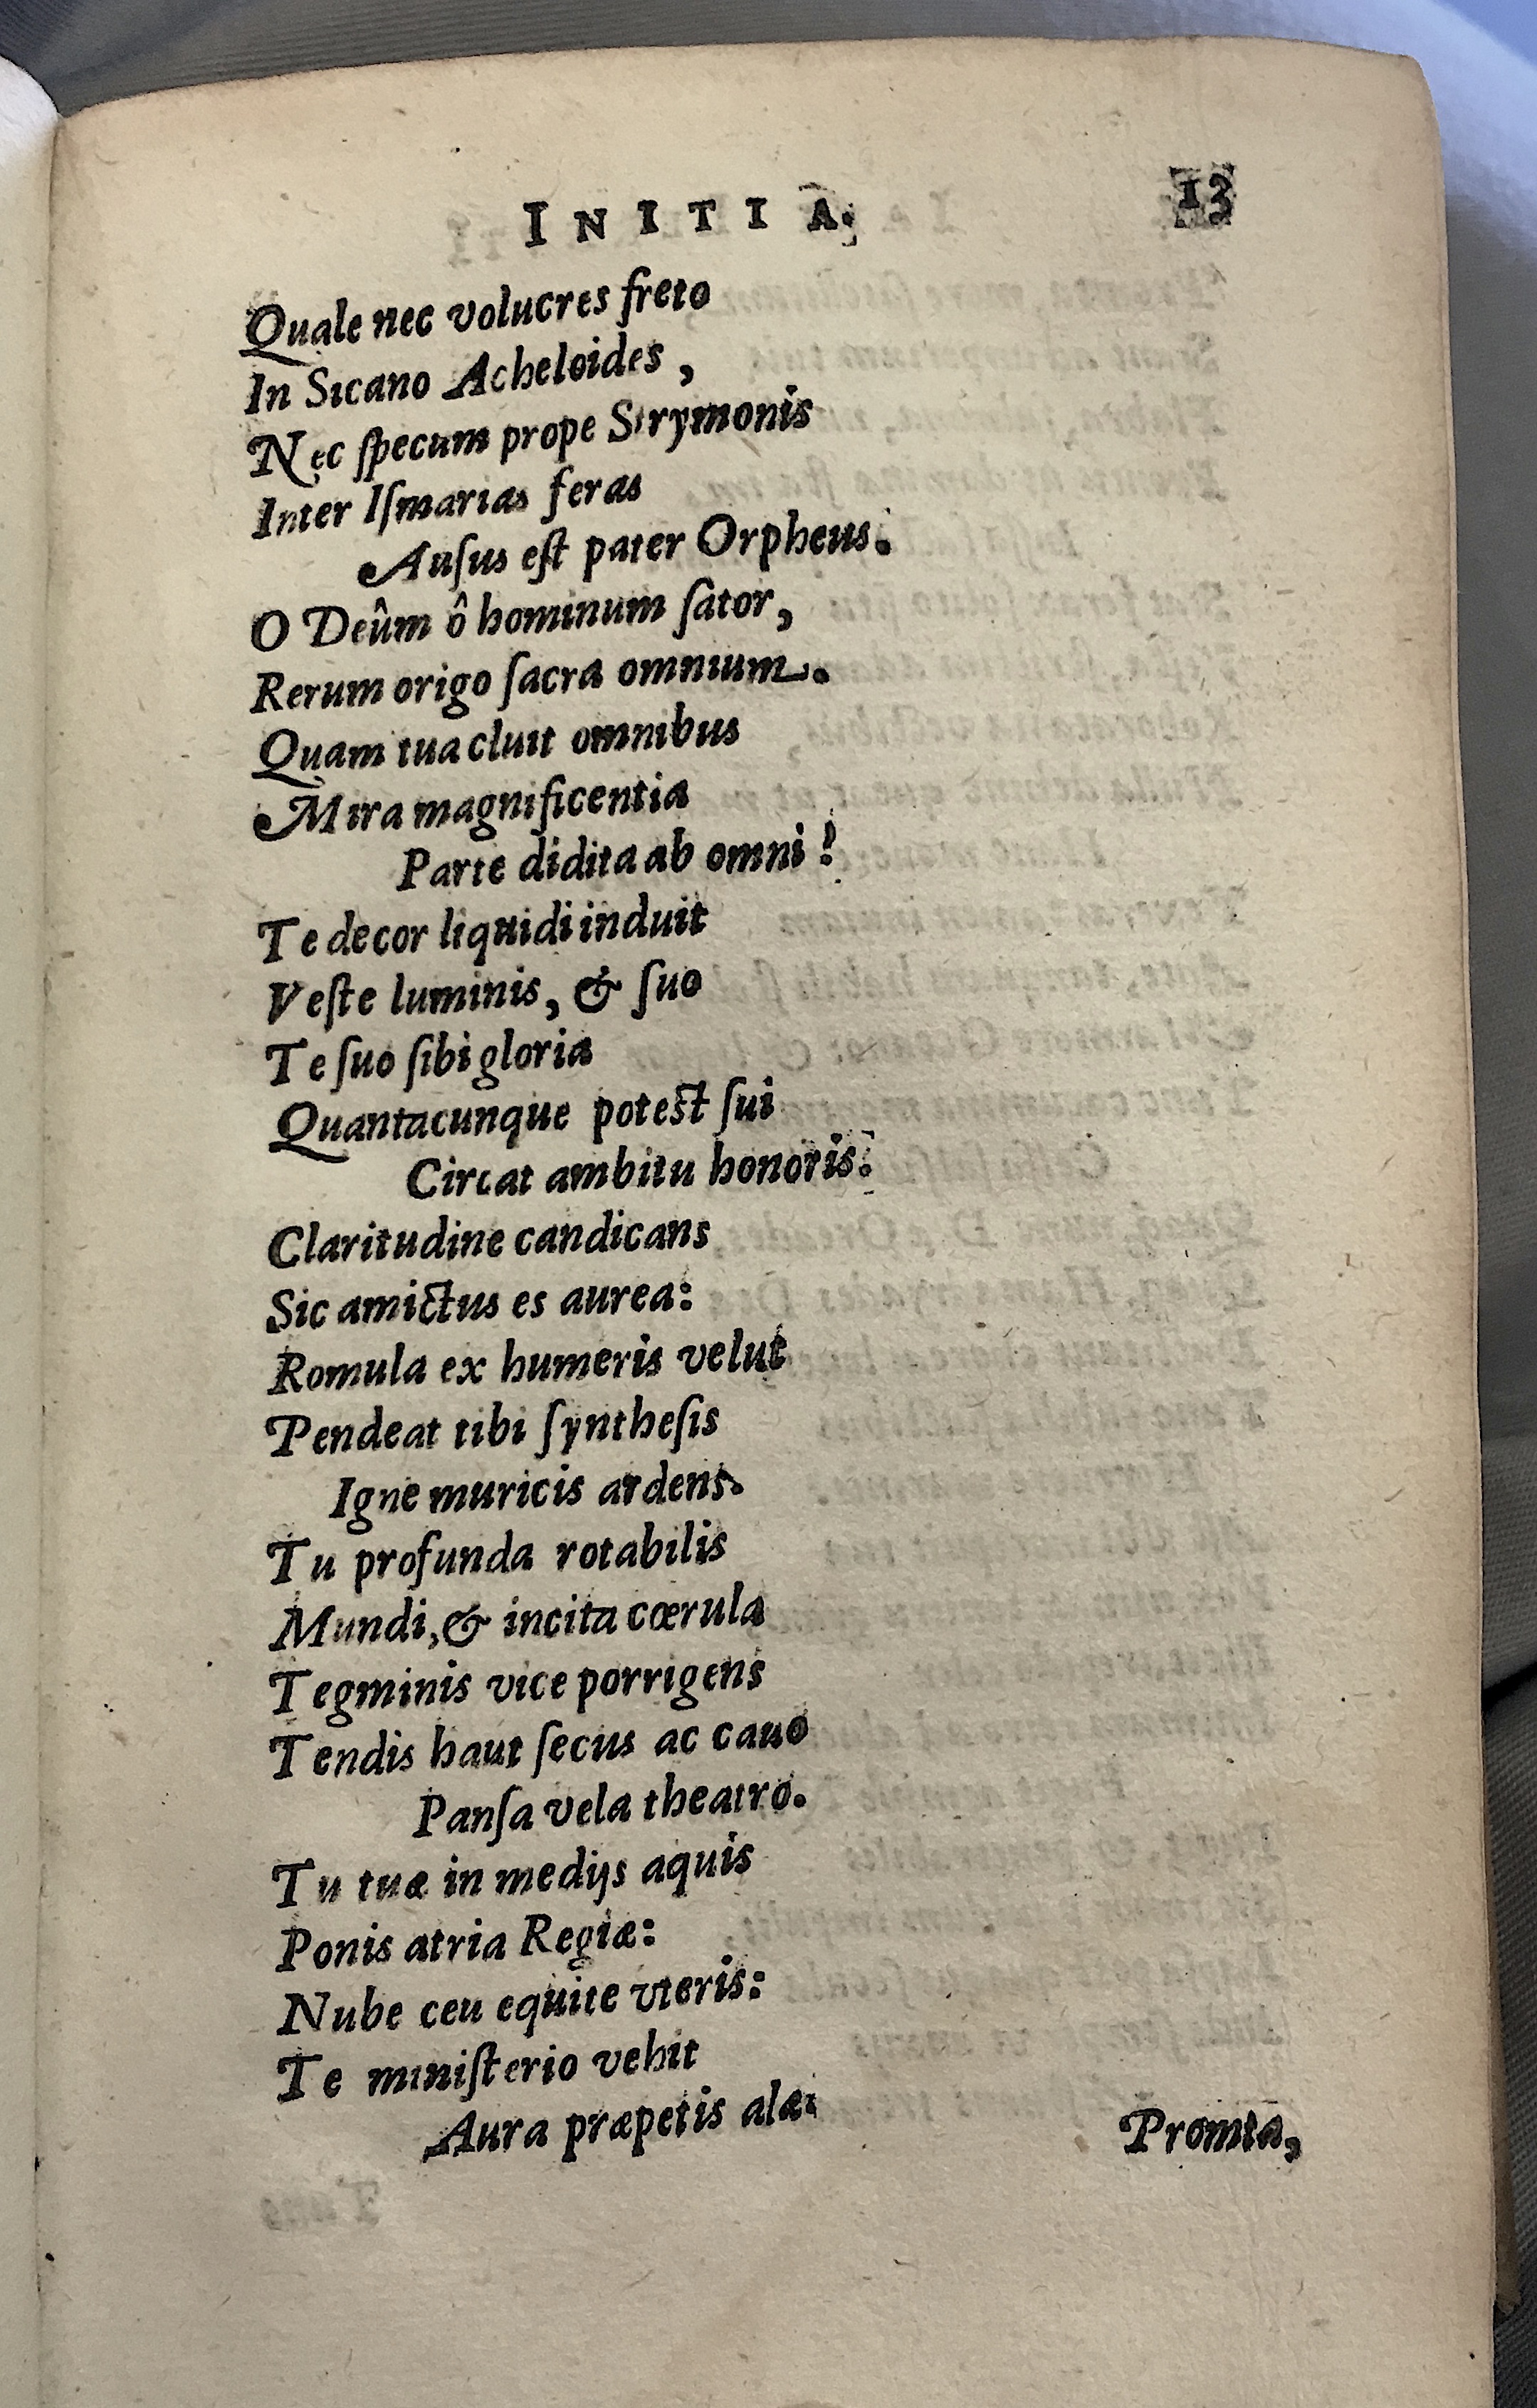 INITIA. 13
Quale nec volucres freto
In Sicano Acheloides,
Nec ſpecum prope Strymonis
Inter Iſmarias feras
Auſus eſt pater Orpheus.
O Deûm ô hominum ſator,
Rerum origo ſacra omnium.
Quam tua cluit omnibus
Mira magnificentia
Parte didita ab omni!
Te decor liquidi induit
Veſte luminis, & ſuo
Te ſuo ſibi gloria
Quantacunque poteſt ſui
Circat ambitu honoris.
Claritudine candicans
Sic amictus es aurea:
Romula ex humeris velut
Pendeat tibi ſyntheſis
Igne muricis ardens.
Tu profunda rotabilis
Mundi, & incita cœrula
Tegminis vice porrigens
Tendis haut ſecus ac cauo
Panſa vela theatro.
Tu tuæ in medijs aquis
Ponis atria Regiæ:
Nube ceu equite vteris:
Te miniſterio vehit
Aura præpetis alæ:
Promta,